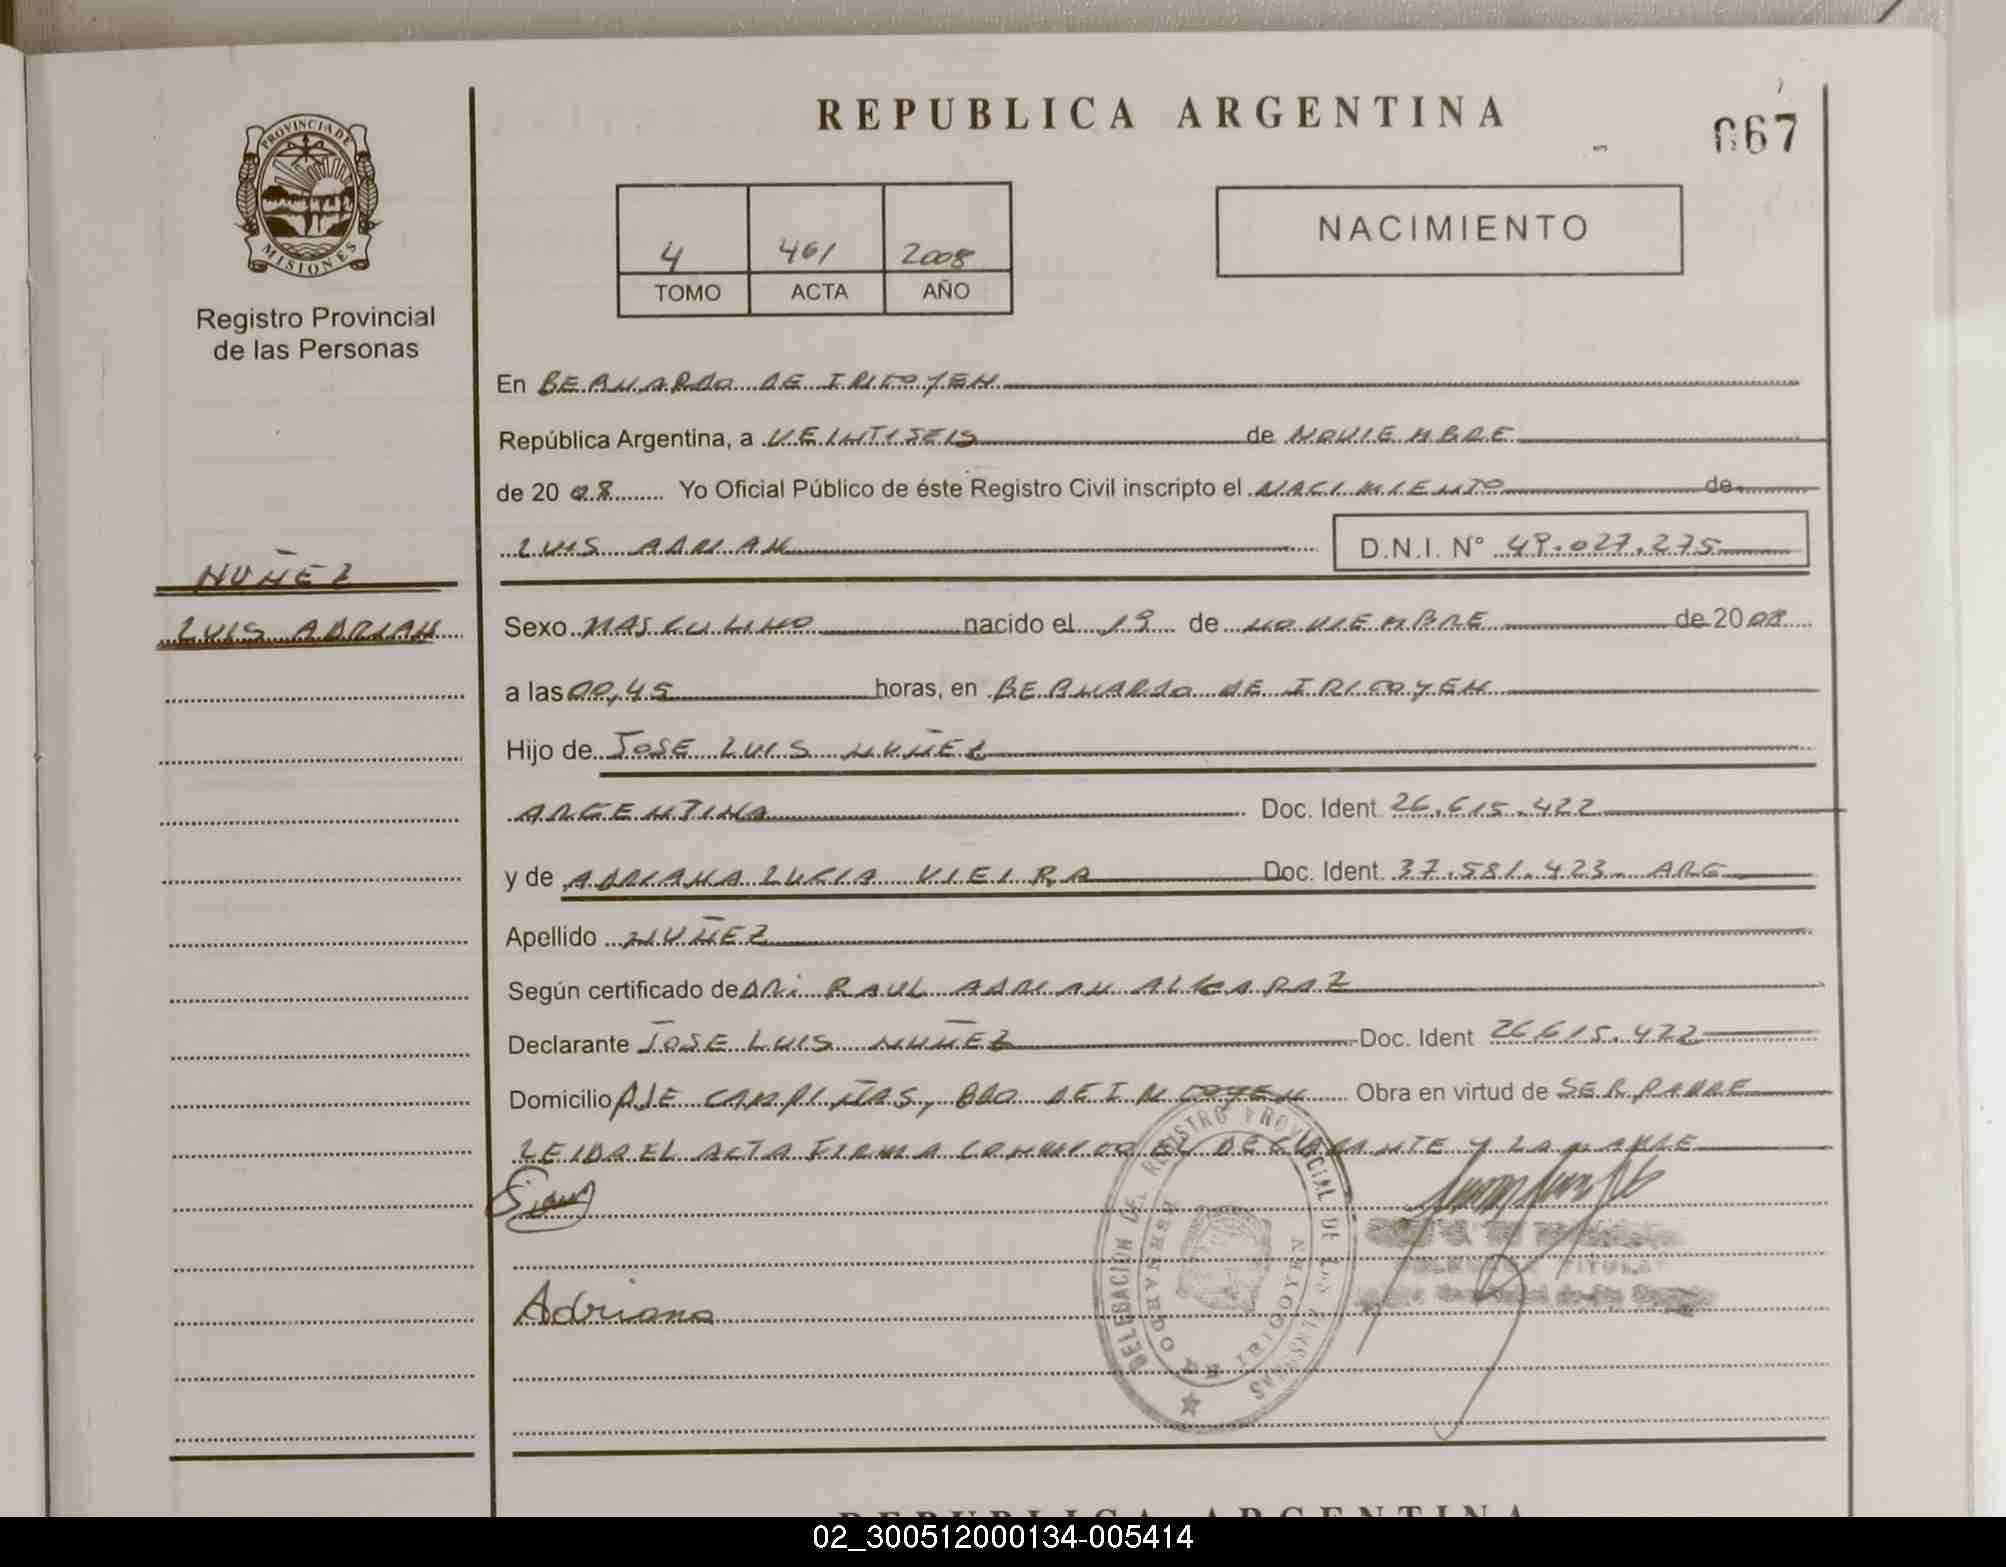 REPUBLICA ARGENTINA
067
PROVINCIA DE
MISIONES
Registro Provincial
de las Personas
4 461 2008
TOMO ACTA AÑO
NACIMIENTO
En BERNARDO DE IRIGOYEN
República Argentina, a VEINTISEIS de NOVIEMBRE
de 2008 Yo Oficial Público de éste Registro Civil inscripto el NACIMIENTO de
LUIS ADRIAN D.N.I. N° 49.027.275
NUÑEZ
LUIS ADRIAN
Sexo MASCULINO nacido el 19 de NOVIEMBRE de 2008
a las 00,45 horas, en BERNARDO DE IRIGOYEN
Hijo de JOSE LUIS NUÑEZ
ARGENTINA Doc. Ident. 26.615.422
y de ADRIANA LUCIA VIEIRA Doc. Ident. 37.581.423. ARG
Apellido NUÑEZ
Según certificado de DR: RAUL ADRIAN ALCARAZ
Declarante JOSE LUIS NUÑEZ Doc. Ident 26.615.422
Domicilio PJE CAMPIÑAS, BDO DE IRIGOYEN Obra en virtud de SER PADRE
LEIDA EL ACTA FIRMA CONMIGO EL DECLARANTE Y LA MADRE
Adriana
DELEGACION DEL REGISTRO PROVINCIAL DE LAS PERSONAS
BERNARDO DE IRIGOYEN
TITULAR
REPUBLICA ARGENTINA
02_300512000134-005414